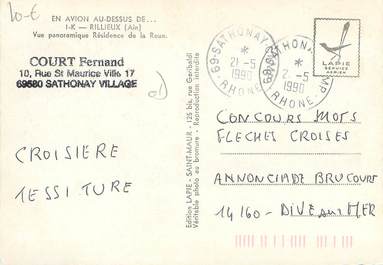 10-€
EN AVION AU-DESSUS DE...
I-K — RILLIEUX (Ain)
Vue panoramique Résidence de la Roue.
COURT Fernand
10, Rue St Maurice Villa 17
69580 SATHONAY VILLAGE
CROISIERE
TESSITURE
Edition LAPIE - SAINT-MAUR - 125 bis, rue Garibaldi
Véritable photo au bromure - Reproduction interdite
69-SATHONAY
21-5
1990
RHONE
SATHONAY
2-5
1990
RHONE
LAPIE
SERVICE
AERIEN
CONCOURS MOTS
FLECHES CROISES
ANNONCIADE BRUCOURT
14160 - DIVE sur MER